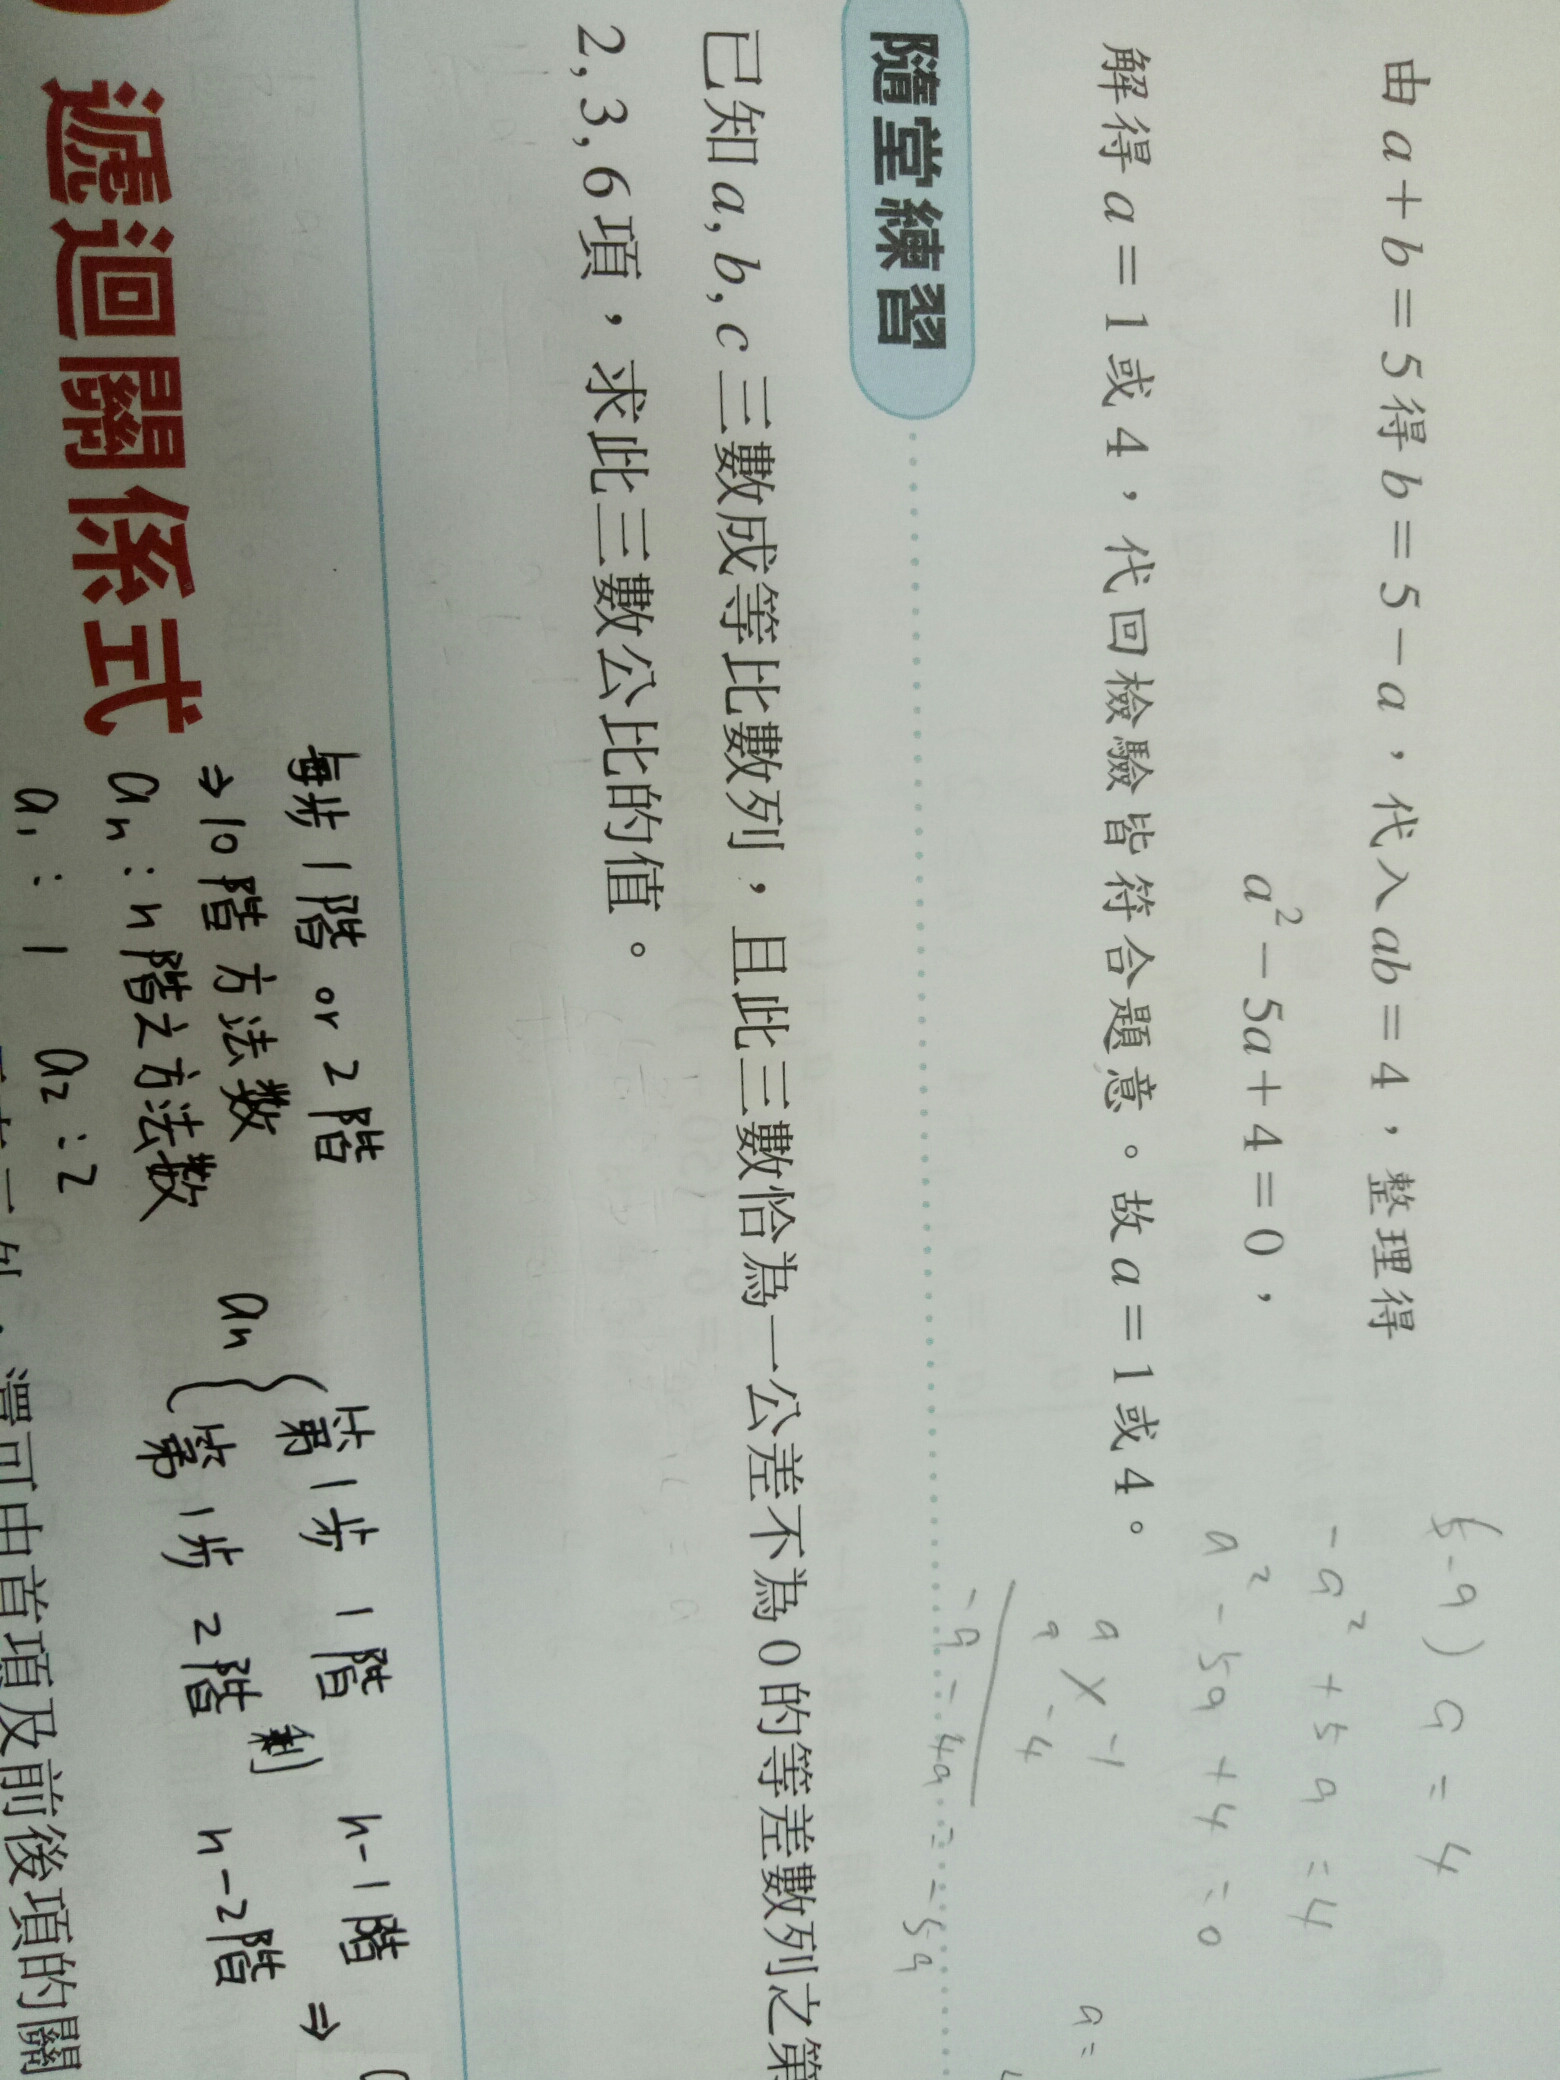 由a+b=5得b=5-a，代入ab=4，整理得
a²-5a+4=0，
解得a=1或4，代回檢驗皆符合題意。故a=1或4。
5-a)a=4
-a²+5a=4
a²-5a+4=0
a -1
a -4
-a-4a=-5a
a=
隨堂練習
已知a,b,c三數成等比數列，且此三數恰為一公差不為0的等差數列之第
2,3,6項，求此三數公比的值。
遞迴關係式
每步1階 or 2階
⇒10階方法数
an：n階之方法数
a1：1 a2：2
an
第1步 1階 n-1階 ⇒
第1步 2階 剩 n-2階
可由首項及前後項的關